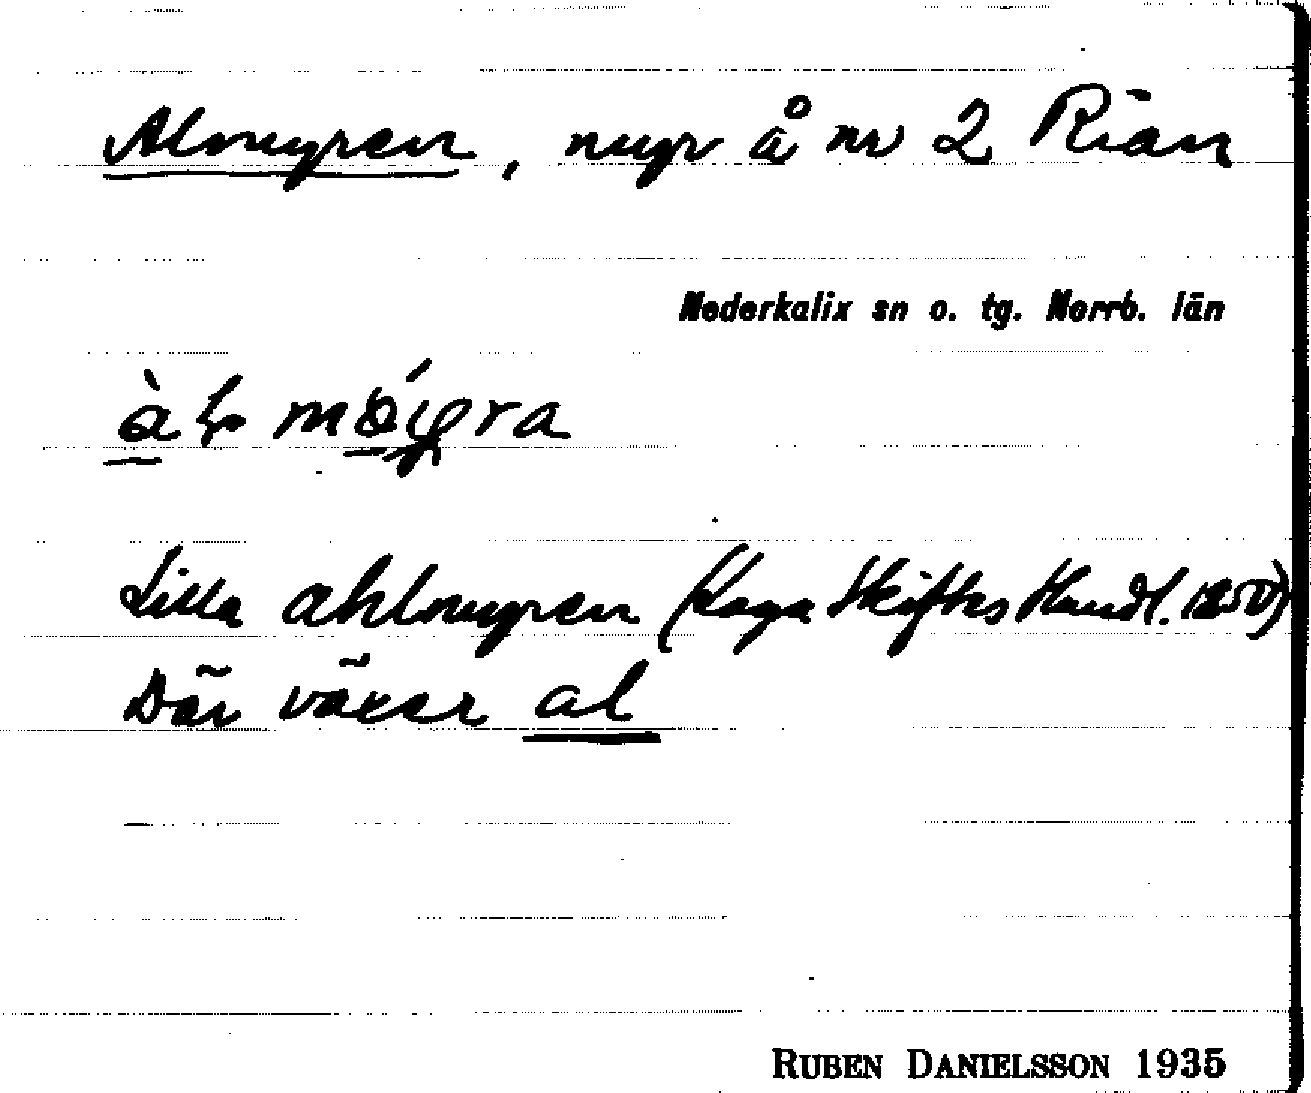 Almyren, myr å nr 2 Rian
Nederkalix sn o. tg. Norrb. län
Lilla ahlmyren (Laga Skiftes Handl. 1850)
Där växer al
RUBEN DANIELSSON 1935